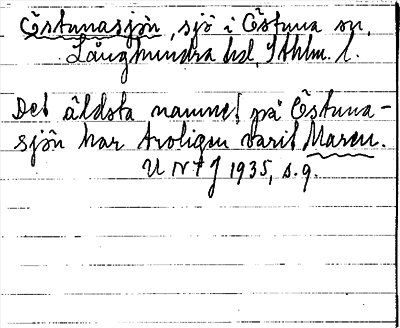 Östunasjön, sjö i Östuna sn,
Långhundra hd, Sthlm. l.
Det äldsta namnet på Östuna-
sjön har troligen varit Maren.
UNFJ 1935, s. 9.